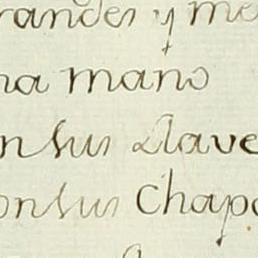 randes y me
na mano
n sus llave
on sus Chapa